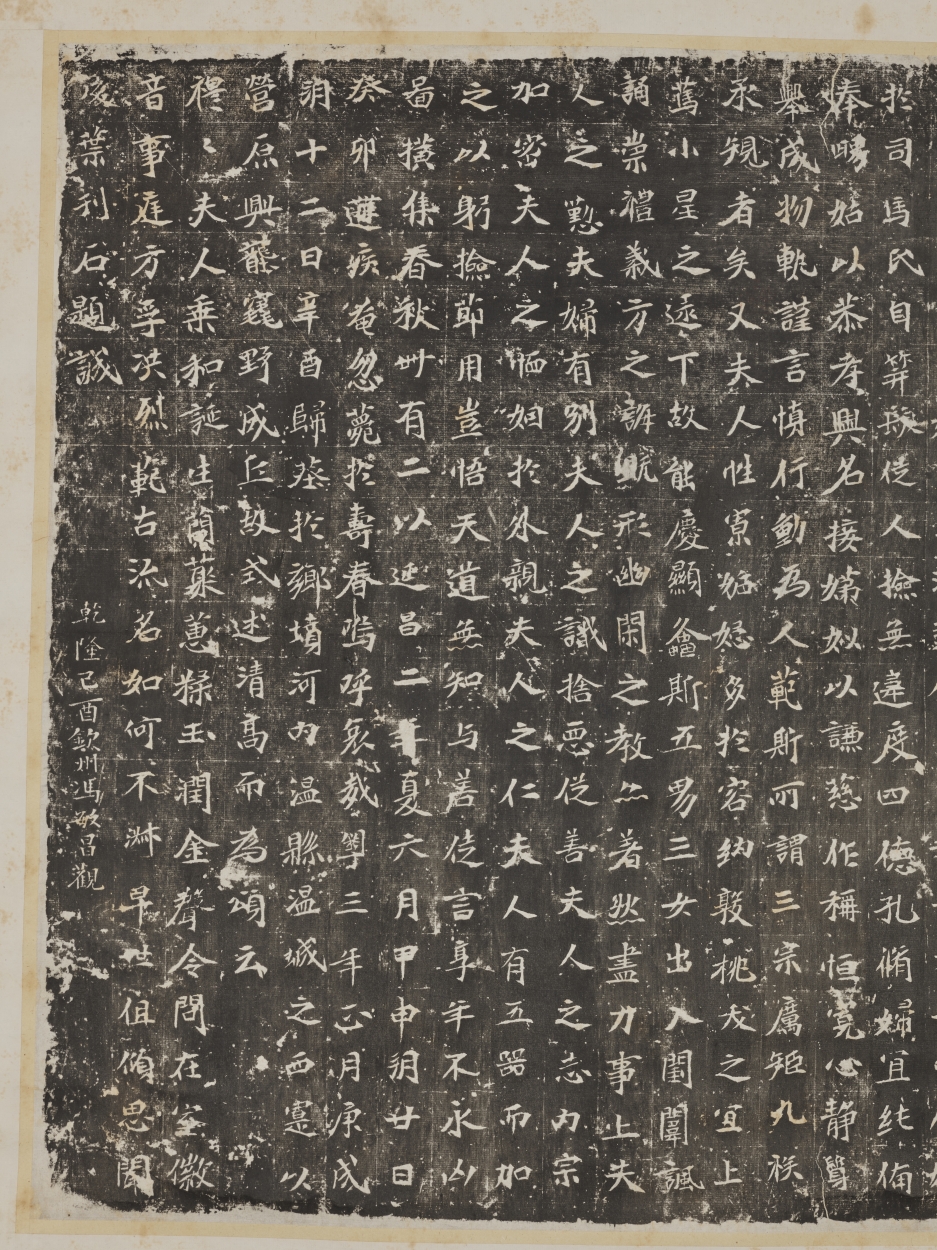 於司馬氏自笄發從人撿無違度四德孔脩婦宜純備
奉舅姑以恭孝興名接娣姒以謙慈作稱恒寬心靜質
舉成物軌謹言慎行動為人範斯所謂三宗厲矩九族
承規者矣又夫人性寡妬忌多於容納敦桃夭之宜上
篤小星之逮下故能慶顯螽斯五男三女出入閨闈諷
誦崇禮義方之訓既形幽閑之教亦著然盡力事上夫
人之懃夫婦有別夫人之識捨惡從善夫人之志內宗
加密夫人之恤姻於外親夫人之仁夫人有五器而加
之以躬撿節用豈悟天道無知与善徒言享年不永凶
啚橫集春秋卌有二以延昌二年夏六月甲申朔廿日
癸卯遘疾奄忽薨於壽春嗚呼哀哉粵三年正月庚戌
朔十二日辛酉歸葬於鄉墳河內溫縣溫城之西寔以
營原興壟寢野成丘故式述清高而為頌云
穆〻夫人乘和誕生蘭蘂蕙糅玉潤金聲令問在室徽
音事庭方孚洪烈範古流名如何不淋早世徂傾思聞
後葉刊石題誠
乾隆己酉欽州馮敏昌觀